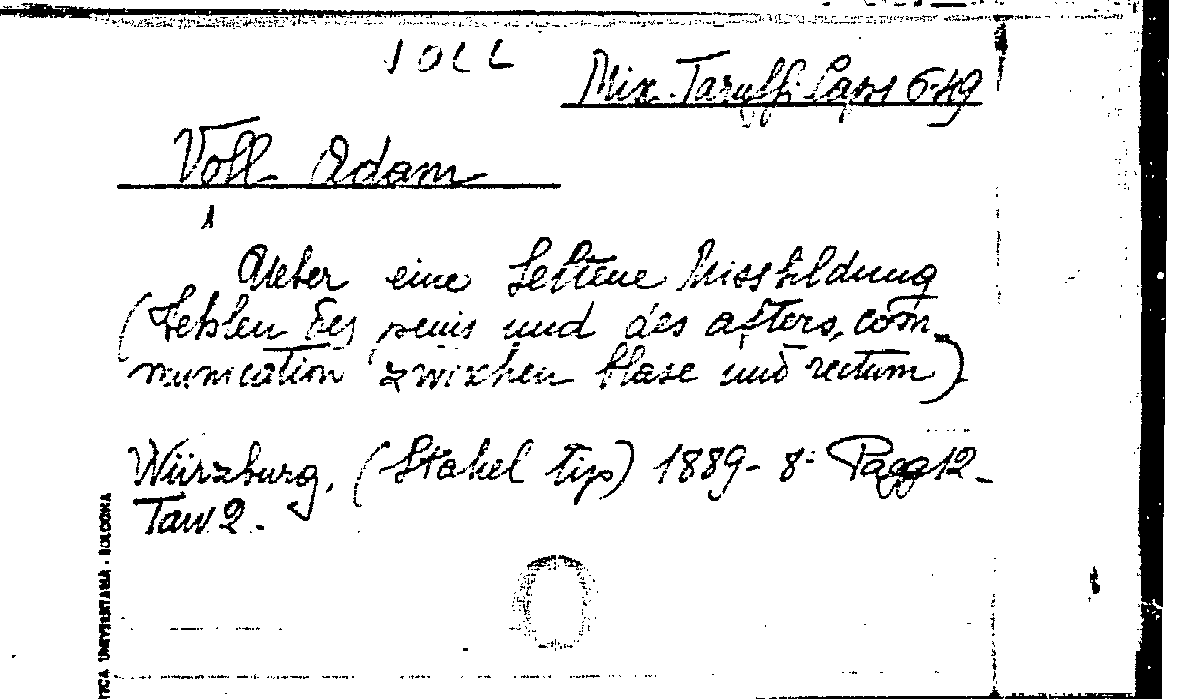 VOLL
Mix. Taruffi Caps 6-49
Voll Adam
1
Ueber eine Seltene Missbildung
(Fehlen des penis und des afters, com-
munication zwischen blase und rectum)
Würzburg, (Stahel tip) 1889 - 8º Pagg 12 -
Tav 2.
TICA UNIVERSITARIA - BOLOGNA